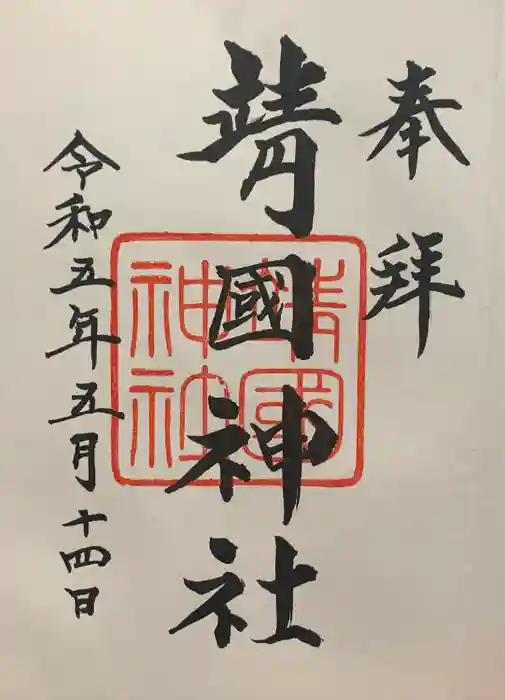 奉拝
靖國神社
靖國神社
令和五年五月十四日